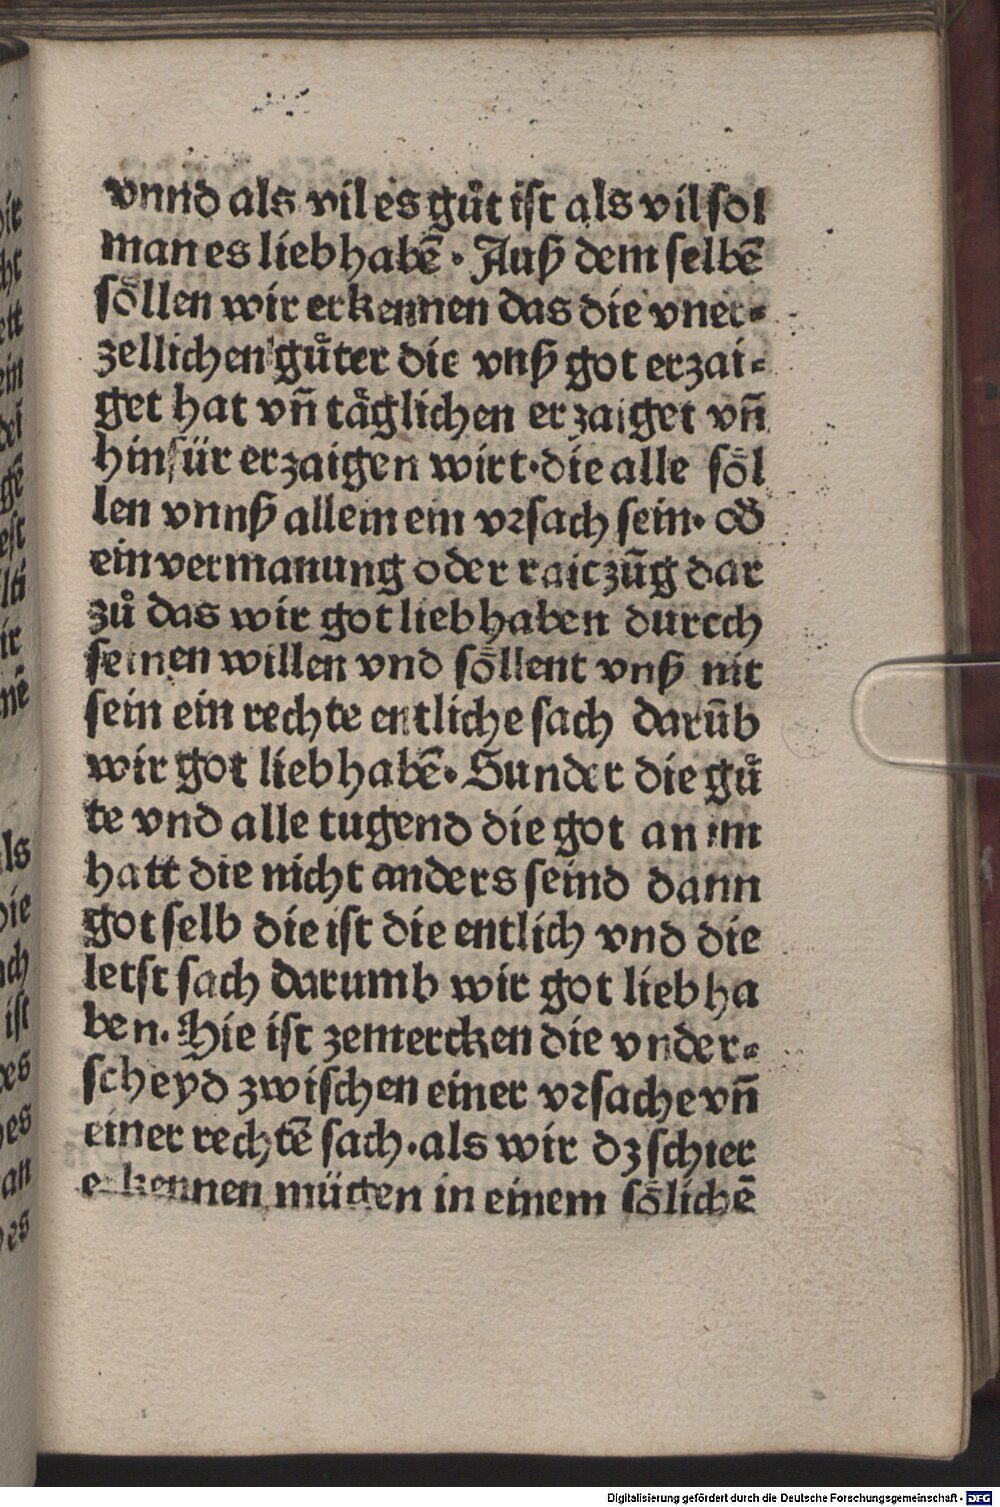 vnnd als vil es gůt ist als vil sol
man es lieb habē. Auß dem selbē
söllen wir erkennen das die vner⸗
zellichen gůter die vnß got erzai⸗
get hat vñ täglichen erzaiget vñ
hinfür erzaigen wirt. die alle söl
len vnnß allein ein vrsach sein. od̄
ein vermanung oder raiczūg dar
zů das wir got lieb haben durch
seinen willen vnd söllent vnß nit
sein ein rechte entliche sach darūb
wir got lieb habē. Sunder die gů
te vnd alle tugend die got an im
hatt die nicht anders seind dann
got selb die ist die entlich vnd die
letst sach darumb wir got lieb ha
ben. Hie ist zemercken die vnder⸗
scheyd zwischen einer vrsache vñ
einer rechtē sach. als wir dz schier
erkennen mügen in einem sölichē
Digitalisierung gefördert durch die Deutsche Forschungsgemeinschaft - DFG